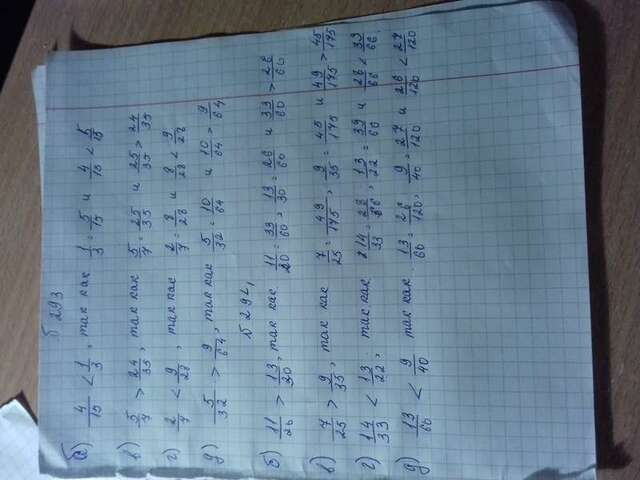 б 293
а) 4/15 < 1/3, так как 1/3 = 5/15 и 4/15 < 5/15
в) 5/7 > 24/35, так как 5/7 = 25/35 и 25/35 > 24/35
г) 2/7 < 9/28, так как 2/7 = 8/28 и 8/28 < 9/28
д) 5/32 > 9/64, так как 5/32 = 10/64 и 10/64 > 9/64
б 294
б) 11/20 > 13/30, так как 11/20 = 33/60, 13/30 = 26/60 и 33/60 > 26/60
в) 7/25 > 9/35, так как 7/25 = 49/175, 9/35 = 45/175 и 49/175 > 45/175
г) 14/33 < 13/22, так как 14/33 = 28/66, 13/22 = 39/66 и 28/66 < 39/66
д) 13/60 < 9/40 так как 13/60 = 26/120, 9/40 = 27/120 и 26/120 < 27/120